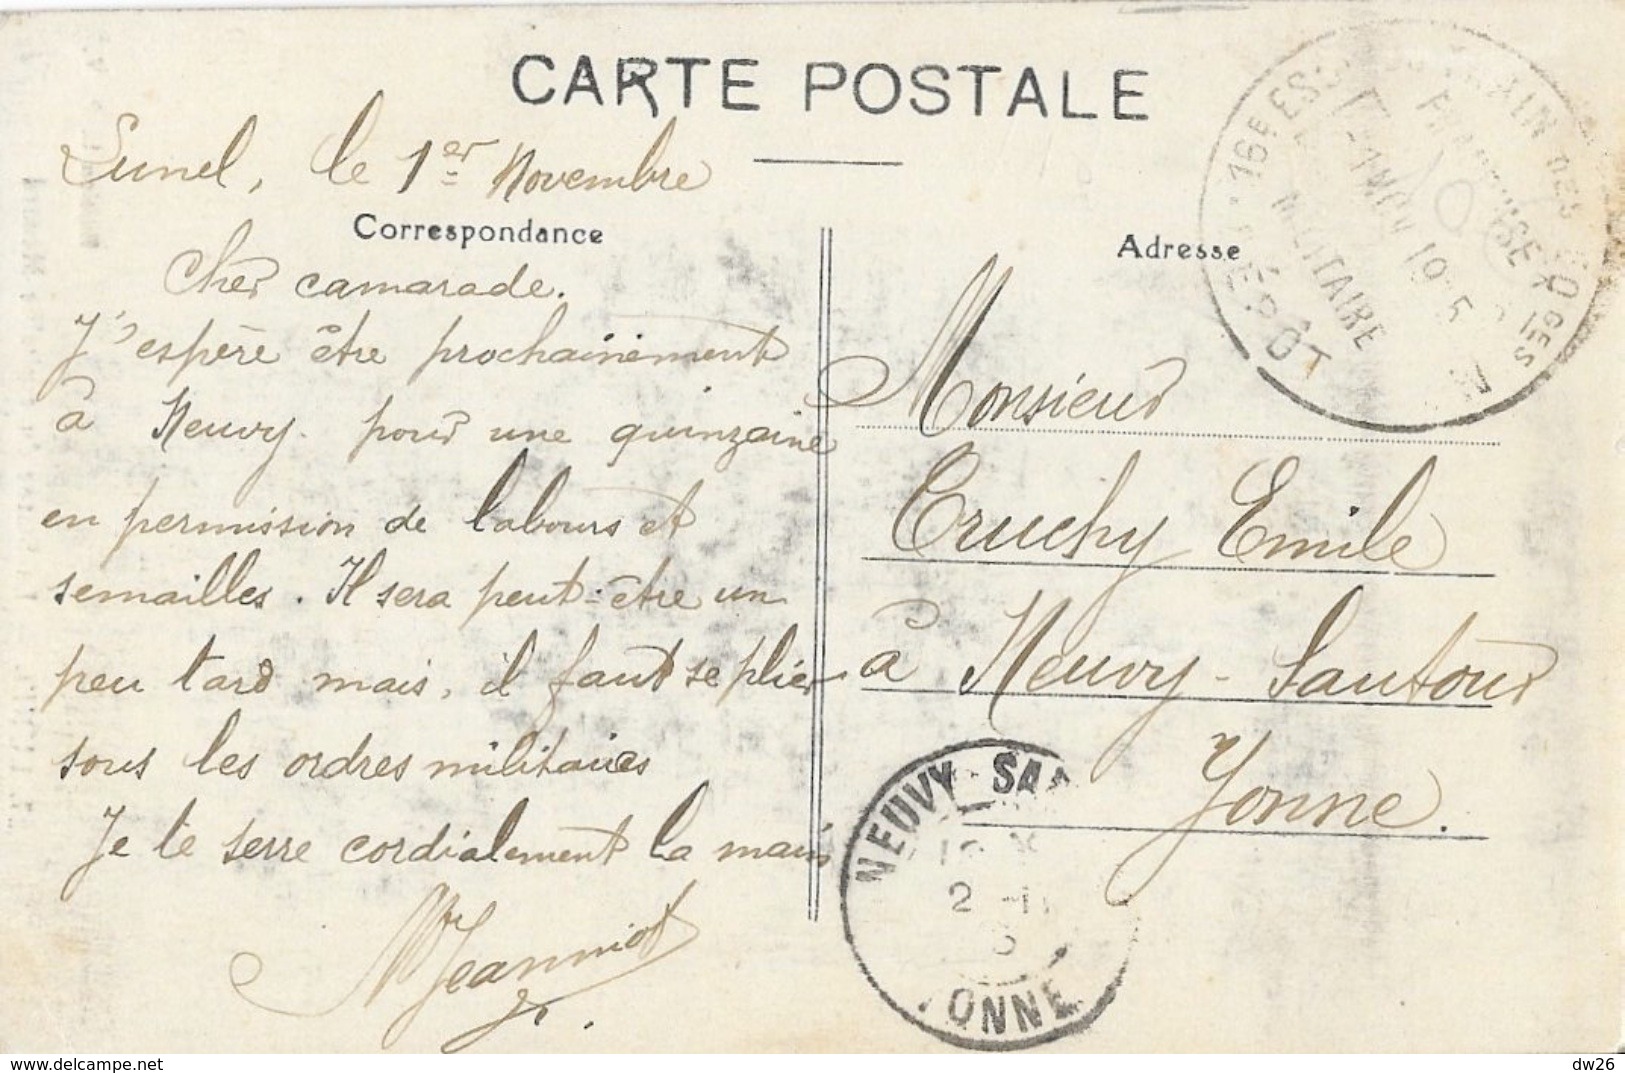 CARTE POSTALE
Lunel, le 1er Novembre
Correspondance
Cher camarade.
J'espère être prochainement
à Neuvy pour une quinzaine
en permission de labours et
semailles. Il sera peut-être un
peu tard mais, il faut se plier
sous les ordres militaires
Je te serre cordialement la main
Jeanniot
Adresse
Monsieur
Cruchy Emile
à Neuvy-Sautour
Yonne.
16E ESC TRAIN DES
MILITAIRE
DÉPÔT
NEUVY-SA
2 -11
YONNE
dw26